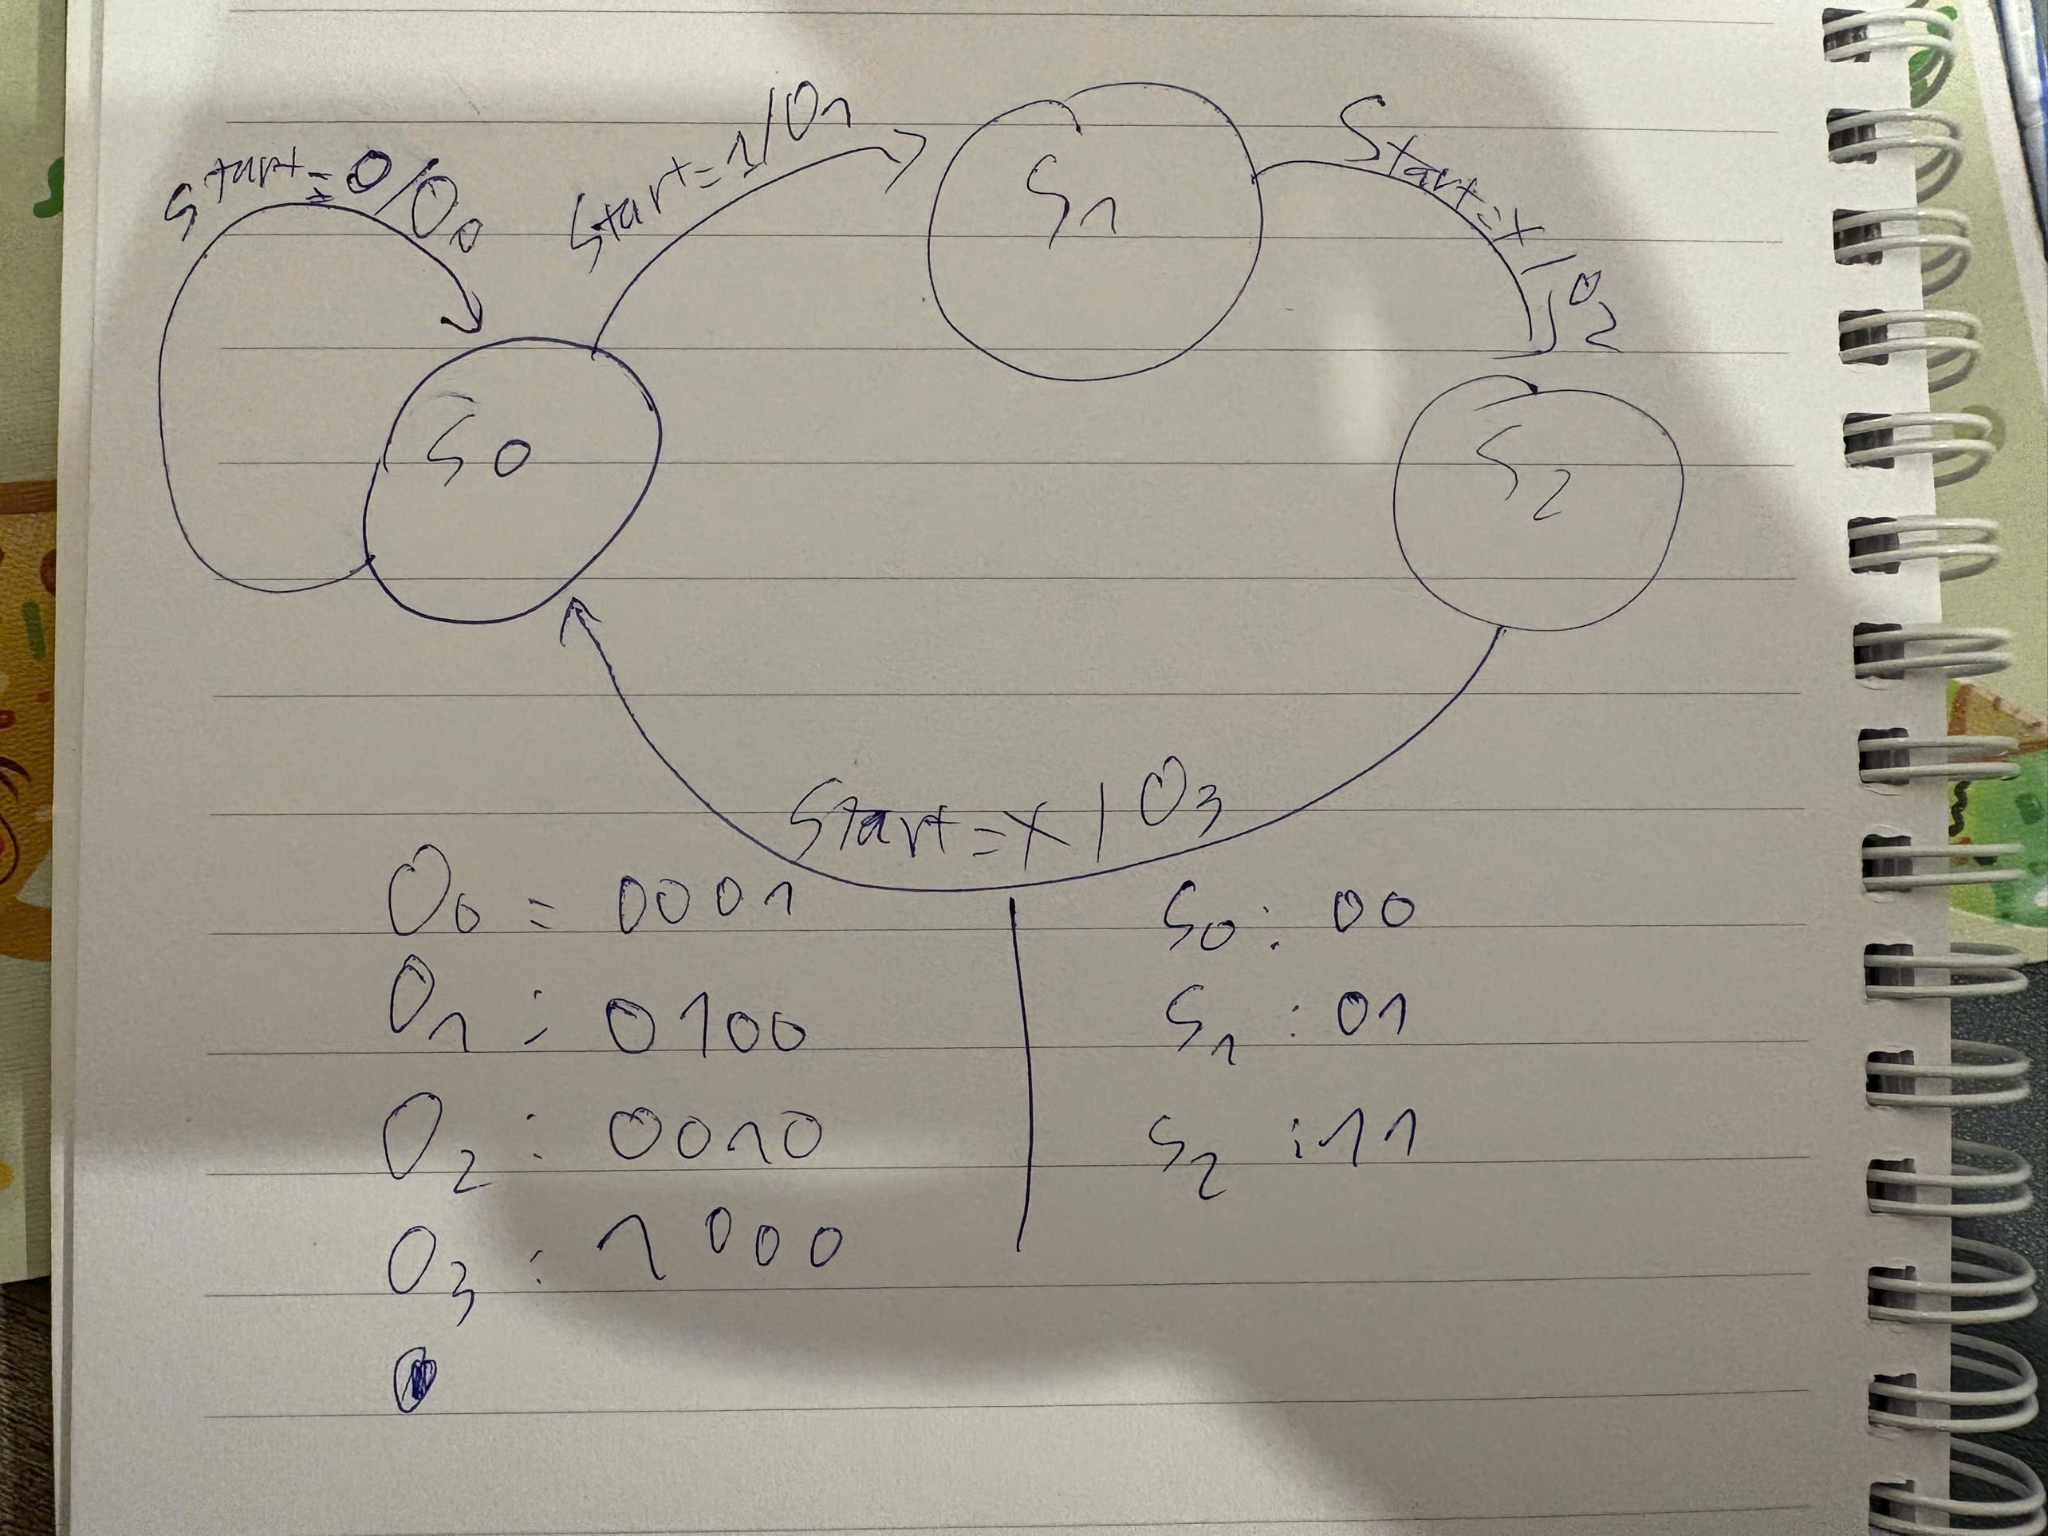 Start=0/O0
Start=1/O1
Start=x/O2
S1
S0
S2
Start=x/O3
O0 = 0001
O1 : 0100
O2 : 0010
O3 : 1000
S0 : 00
S1 : 01
S2 : 11